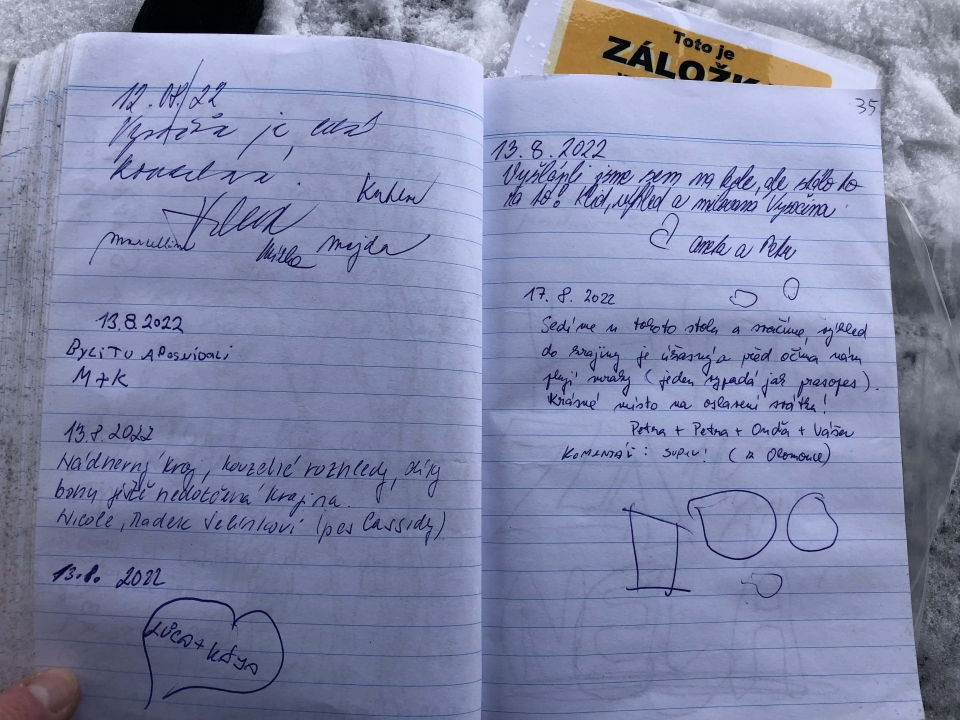 12.08/22
je
Marcellina Míla Majda
13.8.2022
BYLI TU A POSNÍDALI
M+K
13.8.2022
Nádherný kraj, kouzelné rozhledy, díky
bohu ještě nedotčená krajina.
Nicole, Radek (pes Cassidy)
13.8. 2022
LUCA + KÁJA
Toto je
ZÁLOŽK
35
13.8.2022
Vyšlápli jsme sem na kole, ale stálo to
na to! Klid, výhled a milovaná Vysočina
a Petr
17. 8. 2022
Sedíme u tohoto stolu a svačíme, výhled
do krajiny je úžasný a před očima nám
plují mraky (jeden vypadá jak prasopes).
Krásné místo na oslavení svátku!
Petra + Petra + Ondra + Vašek
KOMENTÁŘ: SUPER! (z Olomouce)